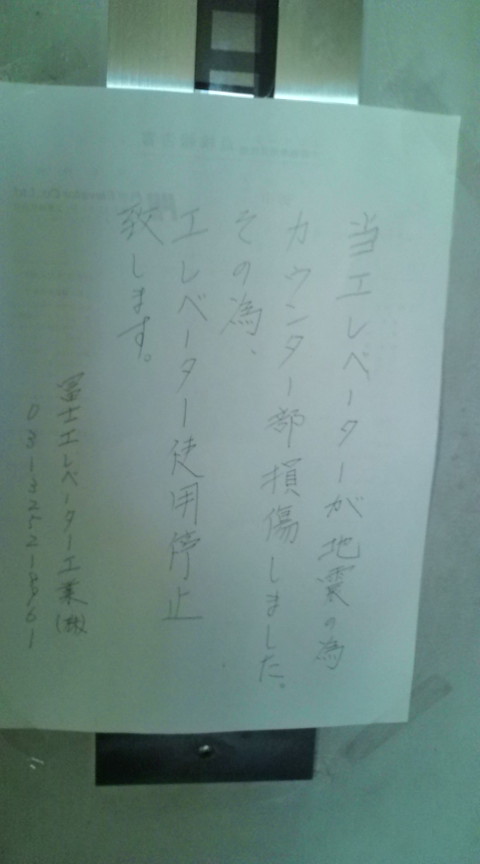 当エレベーターが地震の為
カウンター部損傷しました。
その為、
エレベーター使用停止
致します。
冨士エレベーター工業㈱